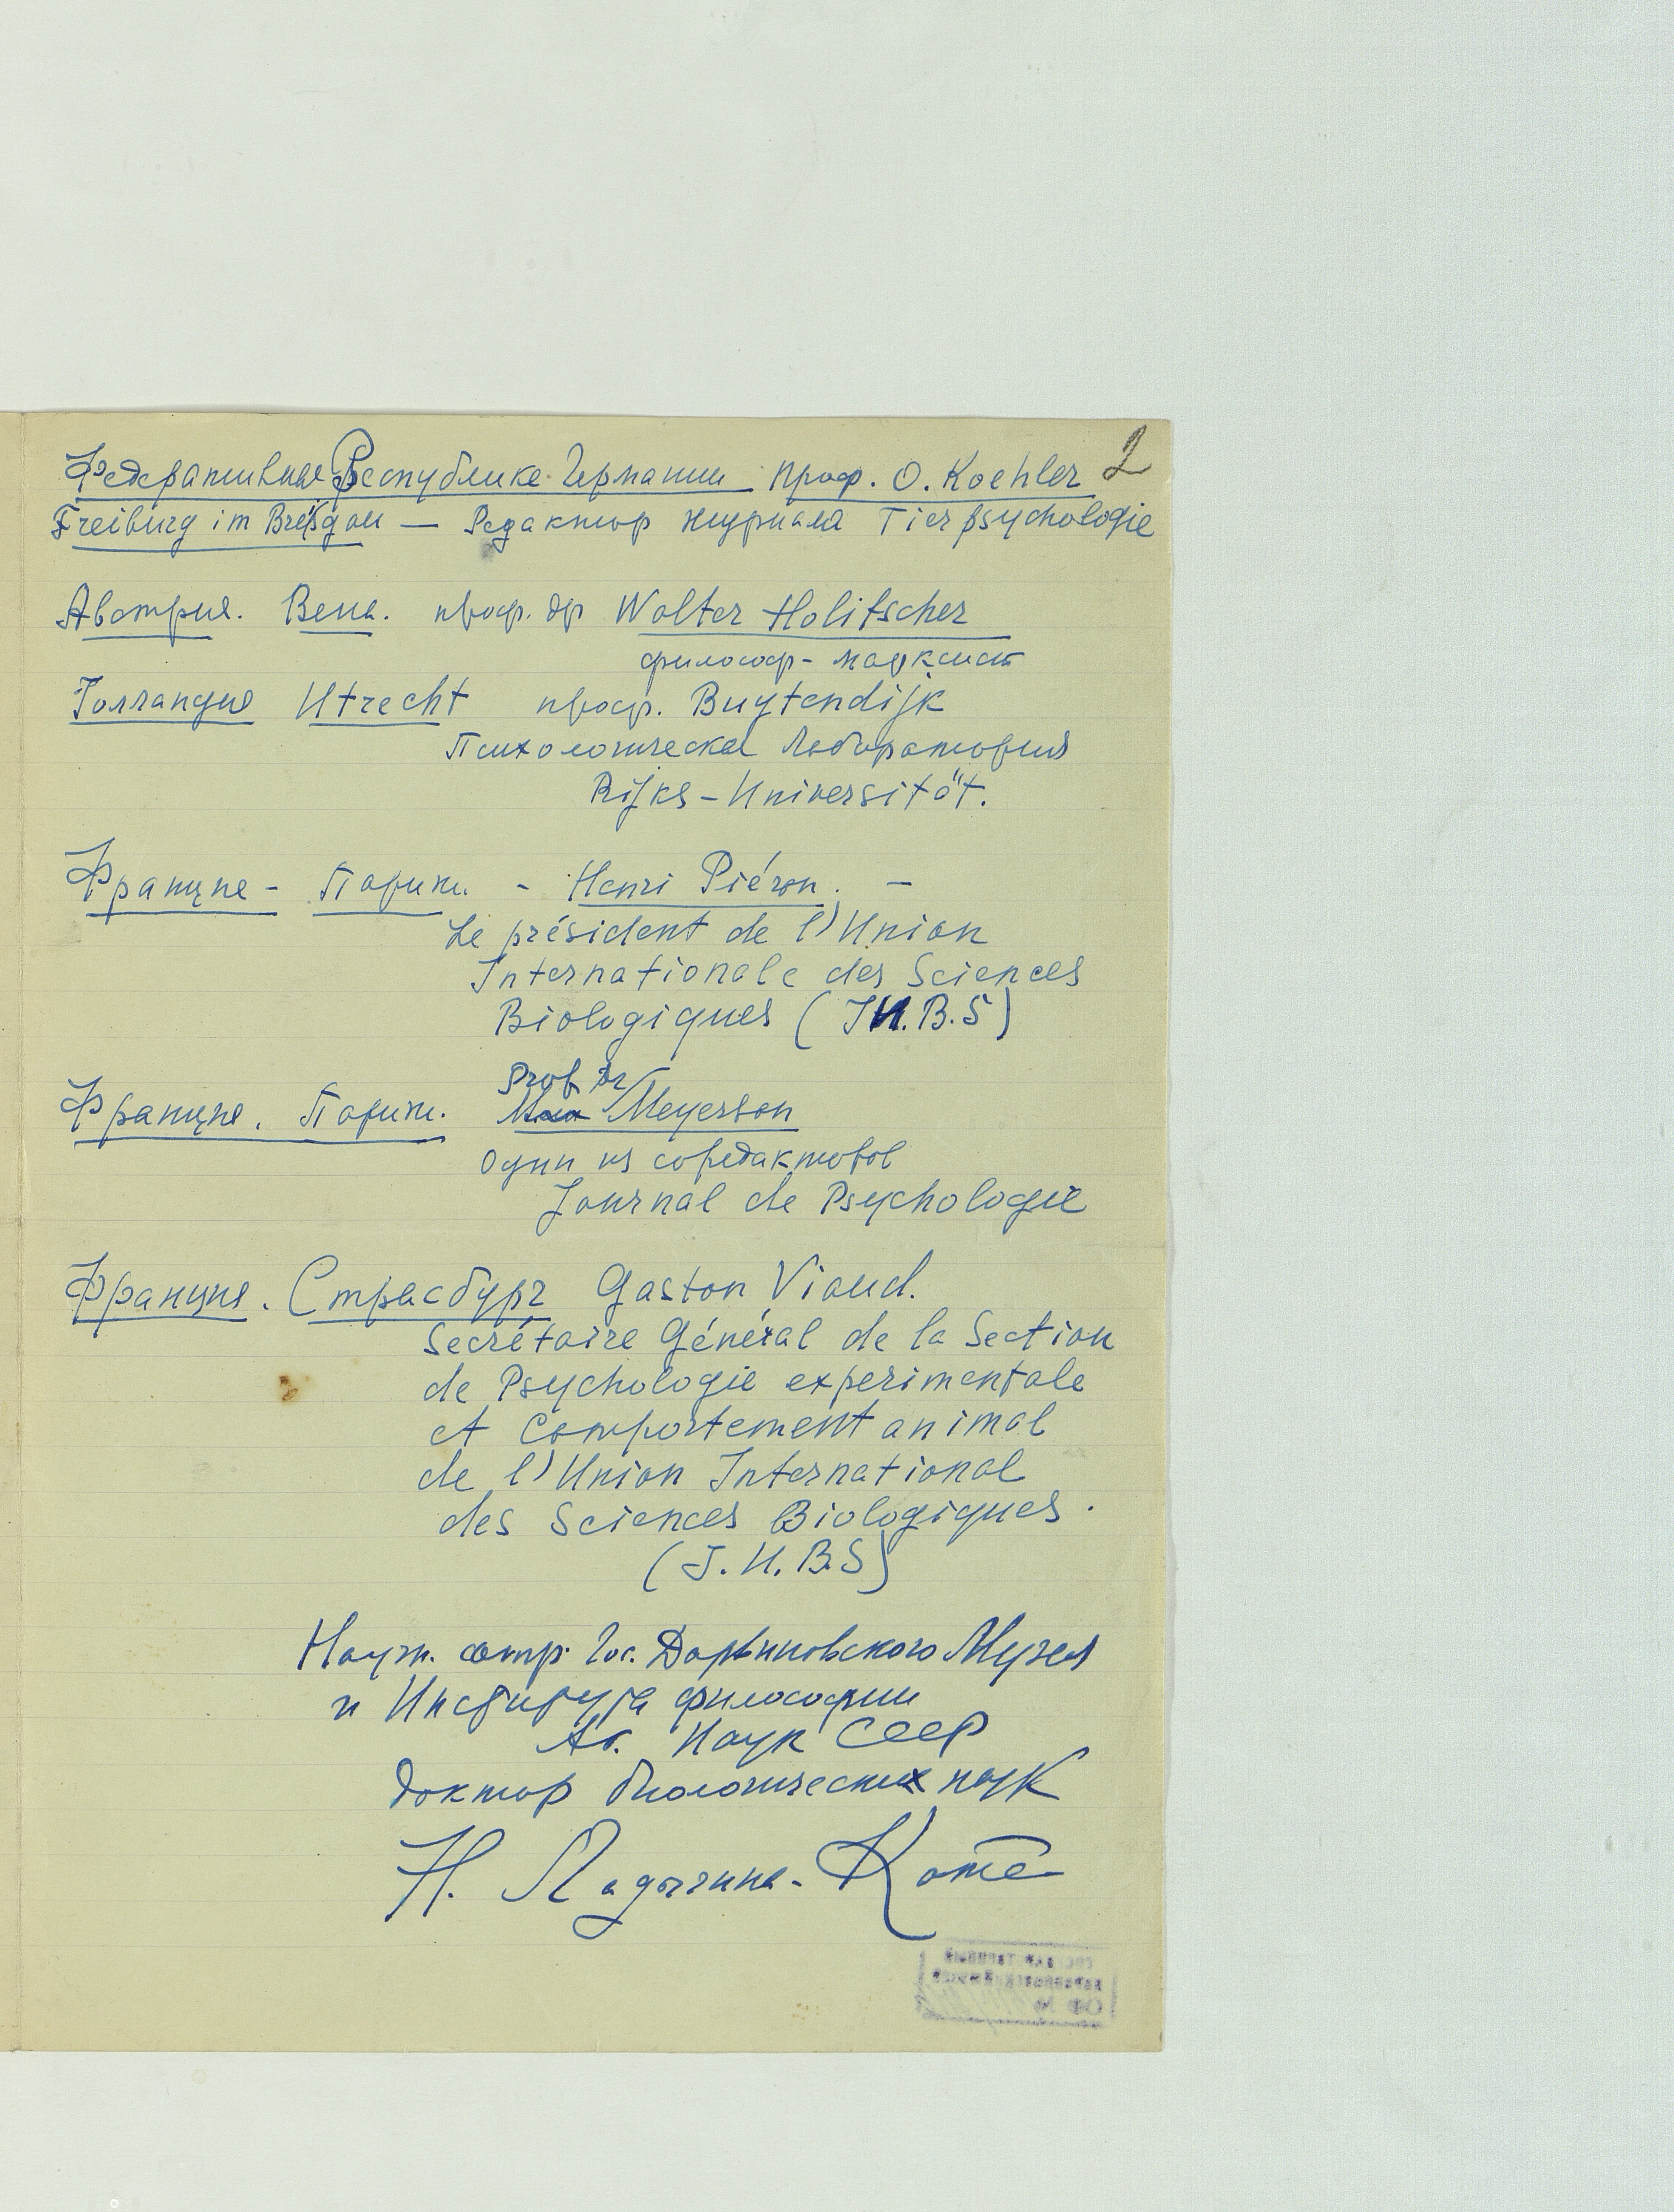 2
Федеративная Республике Германии проф. O. Koehler
Freiburg im Breisgau — Редактор журнала Tierpsychologie
Австрия. Вена. проф. др Walter Holitscher
философ - марксист
Голландия Utrecht проф. Buytendijk
Психологическая Лаборатория
Rijks - Universität.
Франция - Париж. - Henri Piéron. -
Le président de l'Union
Internationale des Sciences
Biologiques (I U. B. S)
Prof Dr
Франция. Париж. Meyerson
Один из соредакторов
Journal de Psychologie
Франция. Страсбург Gaston Viaud.
Secrétaire Général de la Section
de Psychologie experimentale
et Comportement animal
de l'Union International
des Sciences Biologiques.
(I. U. B. S)
Научн. сотр. Гос. Дарвиновского Музея
и Института философии
Ак. Наук СССР
Доктор биологических наук
Н. Ладыгина - Котс
ОФ №